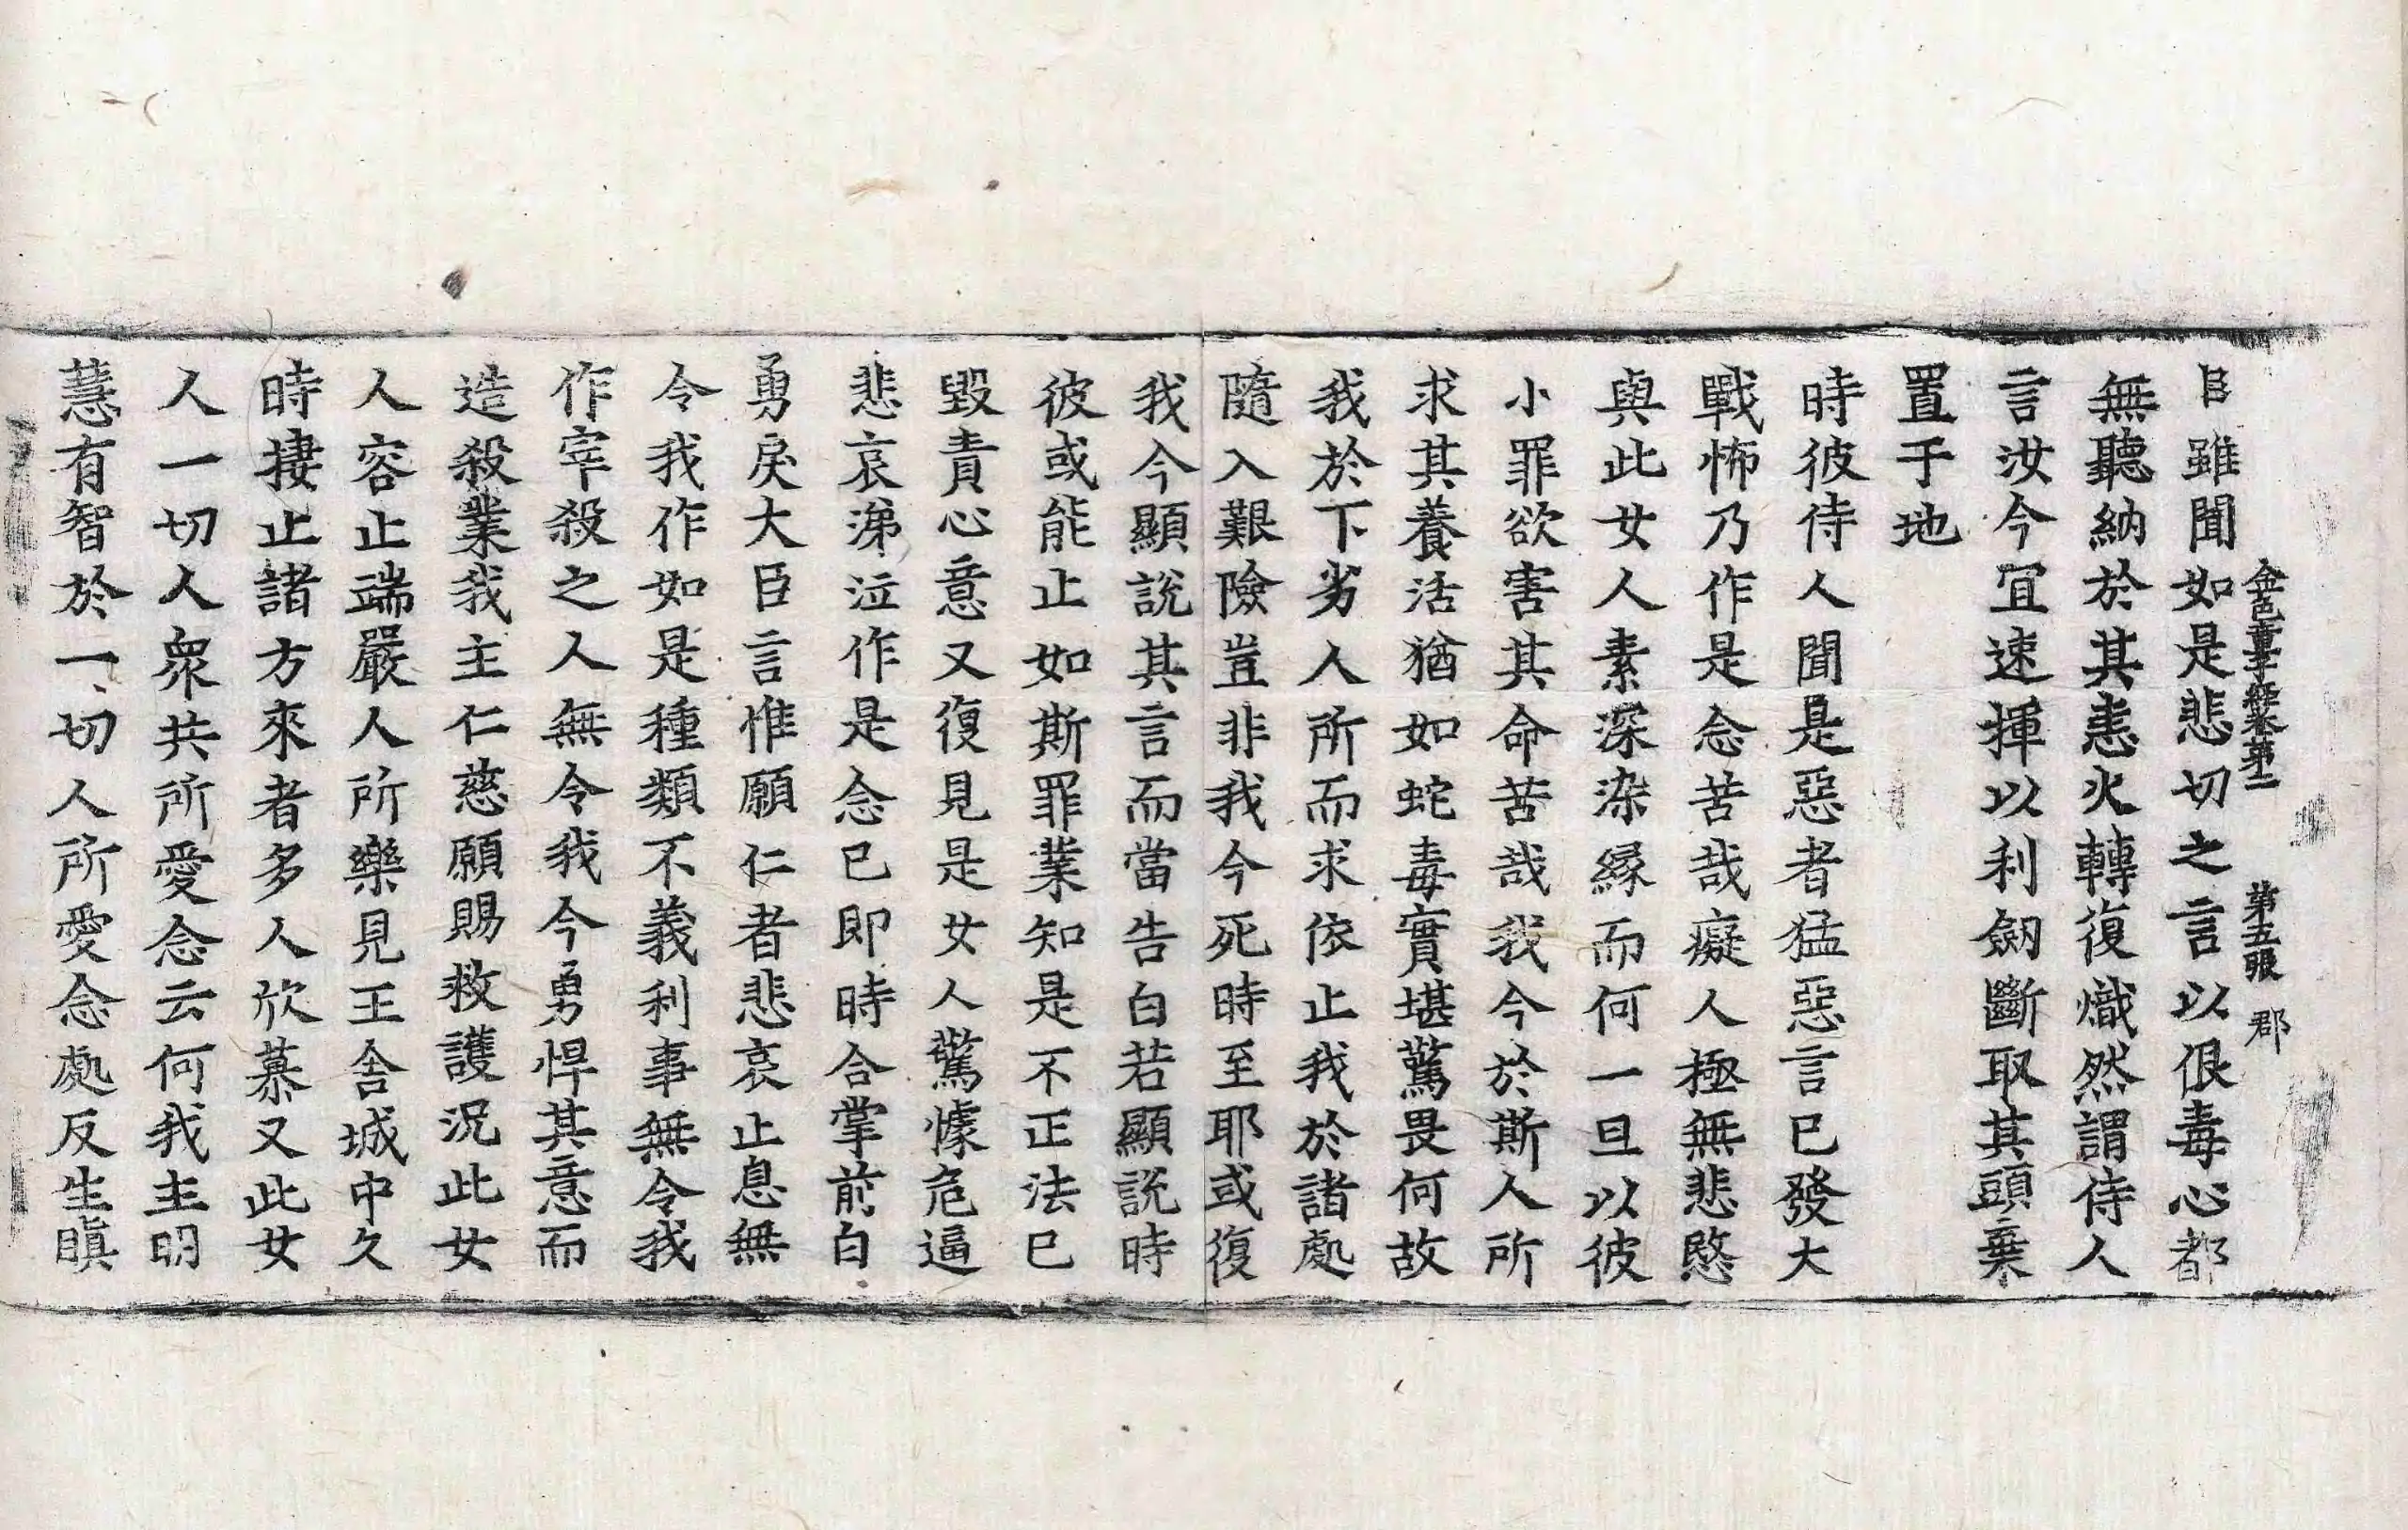 金色童子經卷第二 第五張 郡
臣雖聞如是悲切之言以佷毒心都
無聽納於其恚火轉復熾然謂侍人
言汝今宜速揮以利劒斷取其頭棄
置于地
時彼侍人聞是惡者猛惡言已發大
戰怖乃作是念苦哉癡人極無悲愍
與此女人素深染緣而何一旦以彼
小罪欲害其命苦哉我今於斯人所
求其養活猶如蛇毒實堪驚畏何故
我於下劣人所而求依止我於諸處
隨入艱險豈非我今死時至耶或復
我今顯說其言而當告白若顯說時
彼或能止如斯罪業知是不正法已
毀責心意又復見是女人驚懅危逼
悲哀涕泣作是念已即時合掌前白
勇戾大臣言惟願仁者悲哀止息無
令我作如是種類不義利事無令我
作宰殺之人無令我今勇悍其意而
造殺業我主仁慈願賜救護況此女
人容止端嚴人所樂見王舍城中久
時捿止諸方來者多人欣慕又此女
人一切人衆共所愛念云何我主明
慧有智於一切人所愛念處反生瞋